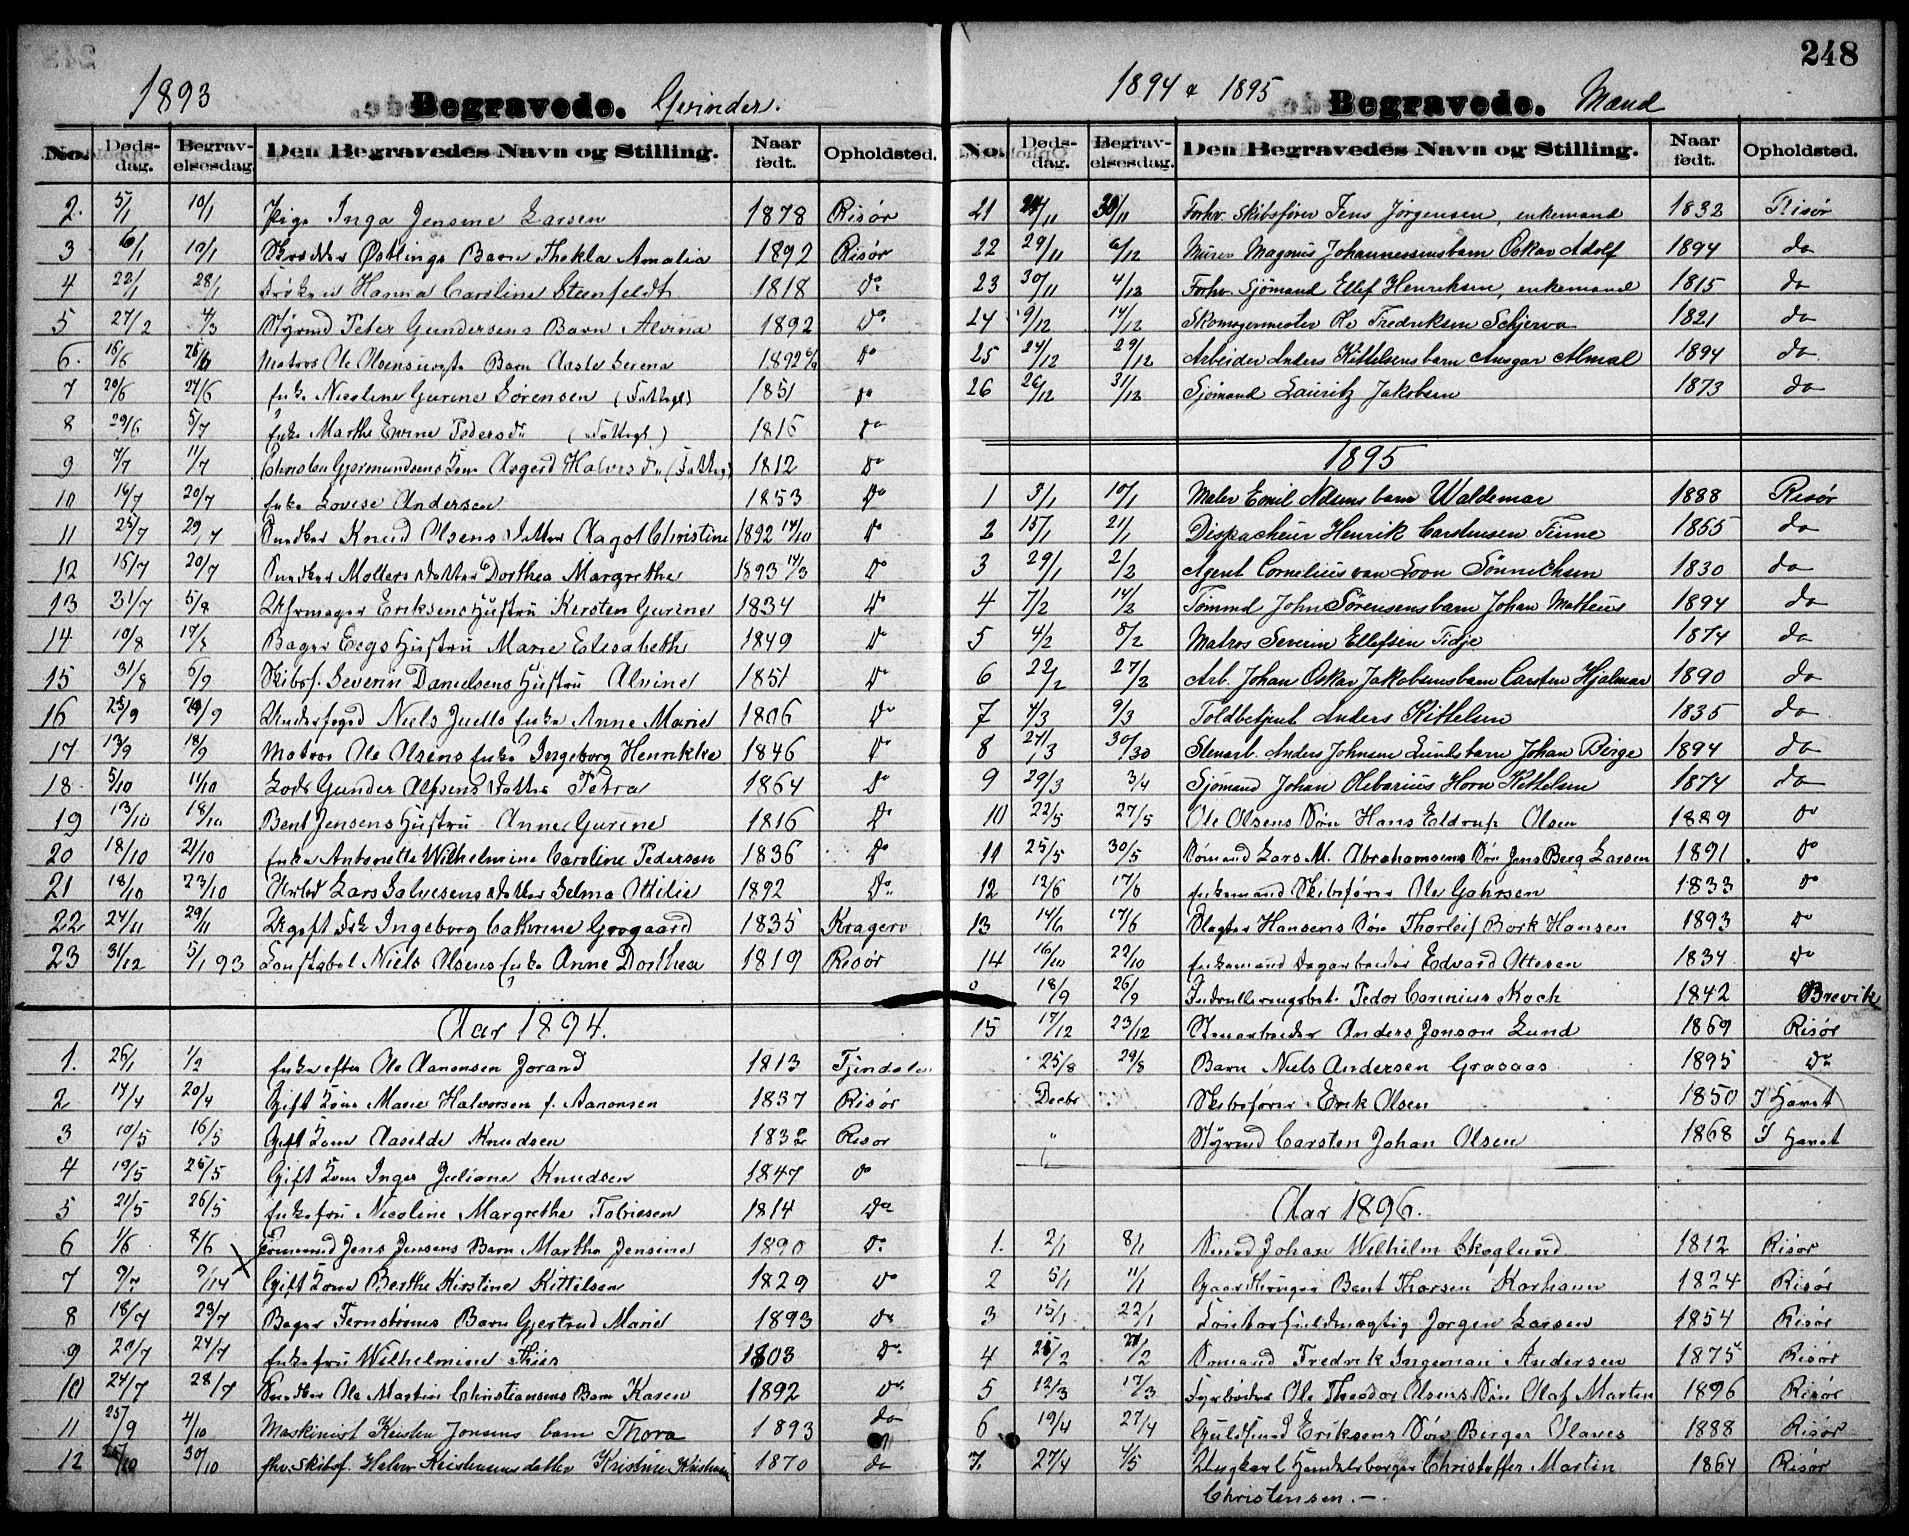 248
1893 Begravede. Qvinder.
No. Døds-dag. Begrav-elsesdag. Den Begravedes Navn og Stilling. Naar født. Opholdsted.
2. 5/1 10/1 Pige Inga Jensine Larsen 1878 Risør
3 6/1 10/1 Østlings Barn Thekla Amalia 1892 Risør
4 22/1 28/1 Frøken Hanna Caroline Steenfeldt 1818 Do
5 27/2 4/3 Styrmd Peter Gundersens Barn Alvina 1892 Do
6. Matros Ole Olsens Barn Aaste Serena 1892 Do
7 20/6 24/6 Enke Nicoline Gurine Sørensen (Fattigl) 1851 Do
8 29/6 5/7 Enke Marthe Pedersdr (Fattigl) 1816 Do
9 7/7 11/7 Gjermundsens Kone Asgerd Halvorsdr 1812 Do
10 16/7 20/7 Enke Lovise Andersen 1853 Do
11 25/7 29/7 Snedker Knud Olsens Datter Aagot Christine 1892 14/10 Do
12 15/7 20/7 Snedker Møllers Datter Dorthea Margrethe 1893 14/3 Do
13 31/7 5/8 Uhrmager Eriksens Hustru Kirsten Gurine 1834 Do
14 10/8 17/8 Bager Eegs Hustru Marie Elisabeth 1849 Do
15 31/8 5/9 Skibsf. Severin Danielsens Hustru Alvine 1851 Do
16 25/9 29/9 Underfoged Niels Juells Enke Anne Marie 1806 Do
17 13/9 18/9 Matros Ole Olsens Enke Ingeborg Henrikke 1846 Do
18. 5/10 11/10 Lods Gunder Alfsens Datter Petra 1864 Do
19 13/10 18/10 Bent Jensens Hustru Anne Gurine 1816 Do
20 18/10 21/10 Enke Antonette Wilhelmine Caroline Pedersen 1836 Do
21 18/10 23/10 Arbd Lars Salvesens Datter Selma Ottilie 1892 Do
22 24/11 29/11 Ugift Frk Ingeborg Cathrine Grogaard 1835 Kragerø
23 31/12 5/1 93 Niels Olsens Enke Anne Dorthea 1819 Risør
Aar 1894.
1. 26/1 1/2 Enke efter Ole Aanonsen Jorand 1813
2 14/4 20/4 Gift Kone Marie Halvorsen f. Aanonsen 1837 Risør
3 10/5 16/5 Gift Kone Aasilde Knudsen 1832 Risør
4 19/5 25/5 Gift Kone Inger Juliane Knudsen 1847 Do
5 21/5 26/5 Enkefru Nicoline Margrethe Tobiesen 1814 Do
6 1/6 8/6 Tømmermd Jens Jensens Barn Martha Jensine 1890 Do
7 9/7 9/14 Gift Kone Berthe Kirstine Kittelsen 1829 Do
8 18/7 23/7 Bager Fernstrøms Barn Gjertrud Marie 1893 Do
9 20/7 24/7 Enkefru Wilhelmine Thiis 1803 Do
10 24/7 28/7 Snedker Ole Martin Christiansens Barn Karen 1892 Do
11 25/9 4/10 Maskinist Kristen Jonsens barn Thora 1893 do
12 25/10 30/10 fhv. Skibsf. Halvor Kristiansens datter Kristine Kristiansen 1870 do
1894 & 1895 Begravede. Mænd
No. Døds-dag. Begrav-elsesdag. Den Begravedes Navn og Stilling. Naar født. Opholdsted.
21 24/11 30/11 Forhv. Skibsfører Jens Jørgensen, enkemand 1832 Risør
22 29/11 6/12 Murer Magnus Johannessens barn Oskar Adolf 1894 do
23 30/11 4/12 Forhv. Sjømand Ellef Henriksen, enkemand 1815 do
24 9/12 14/12 Skomagermester Ole Fredriksen Schjerva 1821 do
25 24/12 29/12 Arbeider Anders Kittelsens barn Ansgar Almal 1894 do
26 26/12 31/12 Sjømand Lauritz Jakobsen 1873 do
1895
1 3/1 10/1 Maler Emil Nilsens barn Waldemar 1888 Risør
2 15/1 21/1 Dispacheur Henrik Carstensen Finne 1855 do
3 29/1 2/2 Agent Cornelius van Loon Sønnichsen 1830 do
4 7/2 14/2 Tømmd John Sørensens barn Johan Matheus 1894 do
5 4/2 8/2 Matros Severin Ellefsen Tidje 1874 do
6 22/2 27/2 Arb. Johan Oskar Jakobsens barn Carsten Hjalmar 1890 do
7 4/3 9/3 Toldbetjent Anders Kittelsen 1835 do
8 24/3 30/30 Stenarb. Anders Johnsen Lunds barn Johan Birge 1894 do
9 29/3 3/4 Sjømand Johan Olebarius Horn Kittelsen 1874 do
10 22/5 27/5 Ole Olsens Søn Hans Eldrup Olsen 1889 Do
11 25/5 30/5 Sømand Lars M. Abrahamsens Søn Jens Berg Larsen 1891 Do
12 12/6 17/6 Enkemand Skibsfører Ole Gahrsen 1833 Do
13 14/6 17/6 Slagter Hansens Søn Thorleif Bork Hansen 1893 Do
14 16/10 22/10 Enkemand Dagarbeider Edvard Ottesen 1834 Do
18/9 26/9 Indrulleringsbet. Peder Carinius Koch 1842 Brevik
15 17/12 23/12 Stenarbeider Anders Jonson Lund 1869 Risør
25/8 29/8 Barn Niels Andersen Grasaas 1895 Do
Decbr Skibsfører Erik Olsen 1850 I Havet
" Styrmd Carsten Johan Olsen 1868 I Havet
Aar 1896.
1. 2/1 8/1 Sømd Johan Wilhelm Skoglund 1812 Risør
2 5/1 11/1 Bent Thorsen Korhann 1824 Risør
3 15/1 22/1 Jørgen Larsen 1854 Risør
4 25/2 Sømand Fredrik Ingeman Andersen 1875 Risør
5 12/3 17/3 Fyrbøder Ole Theodor Olsens Søn Olaf Martin 1896 Risør
6 19/4 27/4 Guldsmed Eriksens Søn Birger Olaves 1888 Risør
7. 27/4 4/5 Ungkarl Handelsborger Christoffer Martin 1864 Risør
Christensen. —